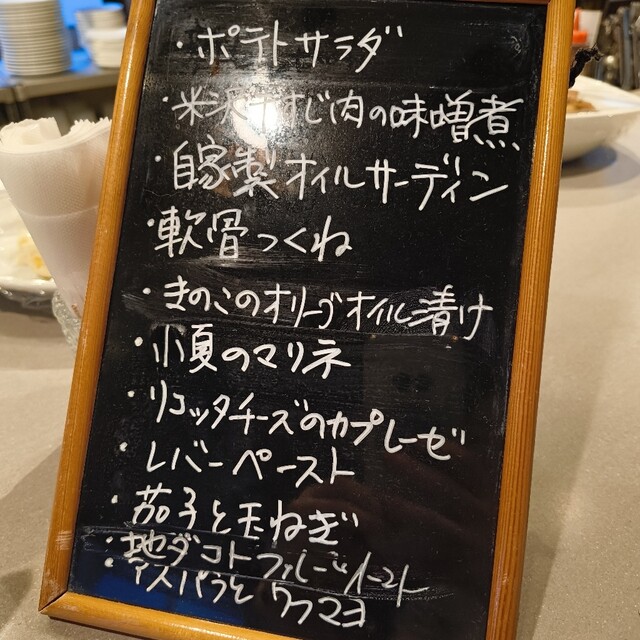 ・ポテトサラダ
・米沢牛すじ肉の味噌煮
・自家製オイルサーディン
・軟骨つくね
・きのこのオリーブオイル漬け
・小夏のマリネ
・リコッタチーズのカプレーゼ
・レバーペースト
・茄子と玉ねぎ
・地ダコトフルーツトマト
・アスパラと ウフマヨ